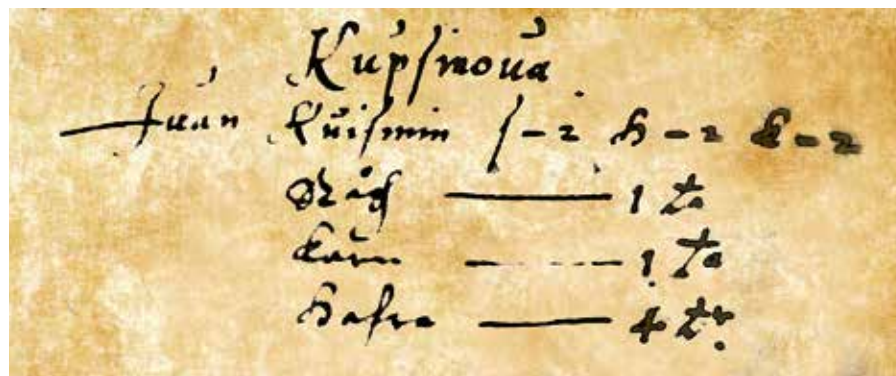 Kupsinoua
Iuan Kuismin s - 2 h - 2 k - 2
Rågh — 1 t:a
Korn — 1 t:a
Hafra — 4 t:r